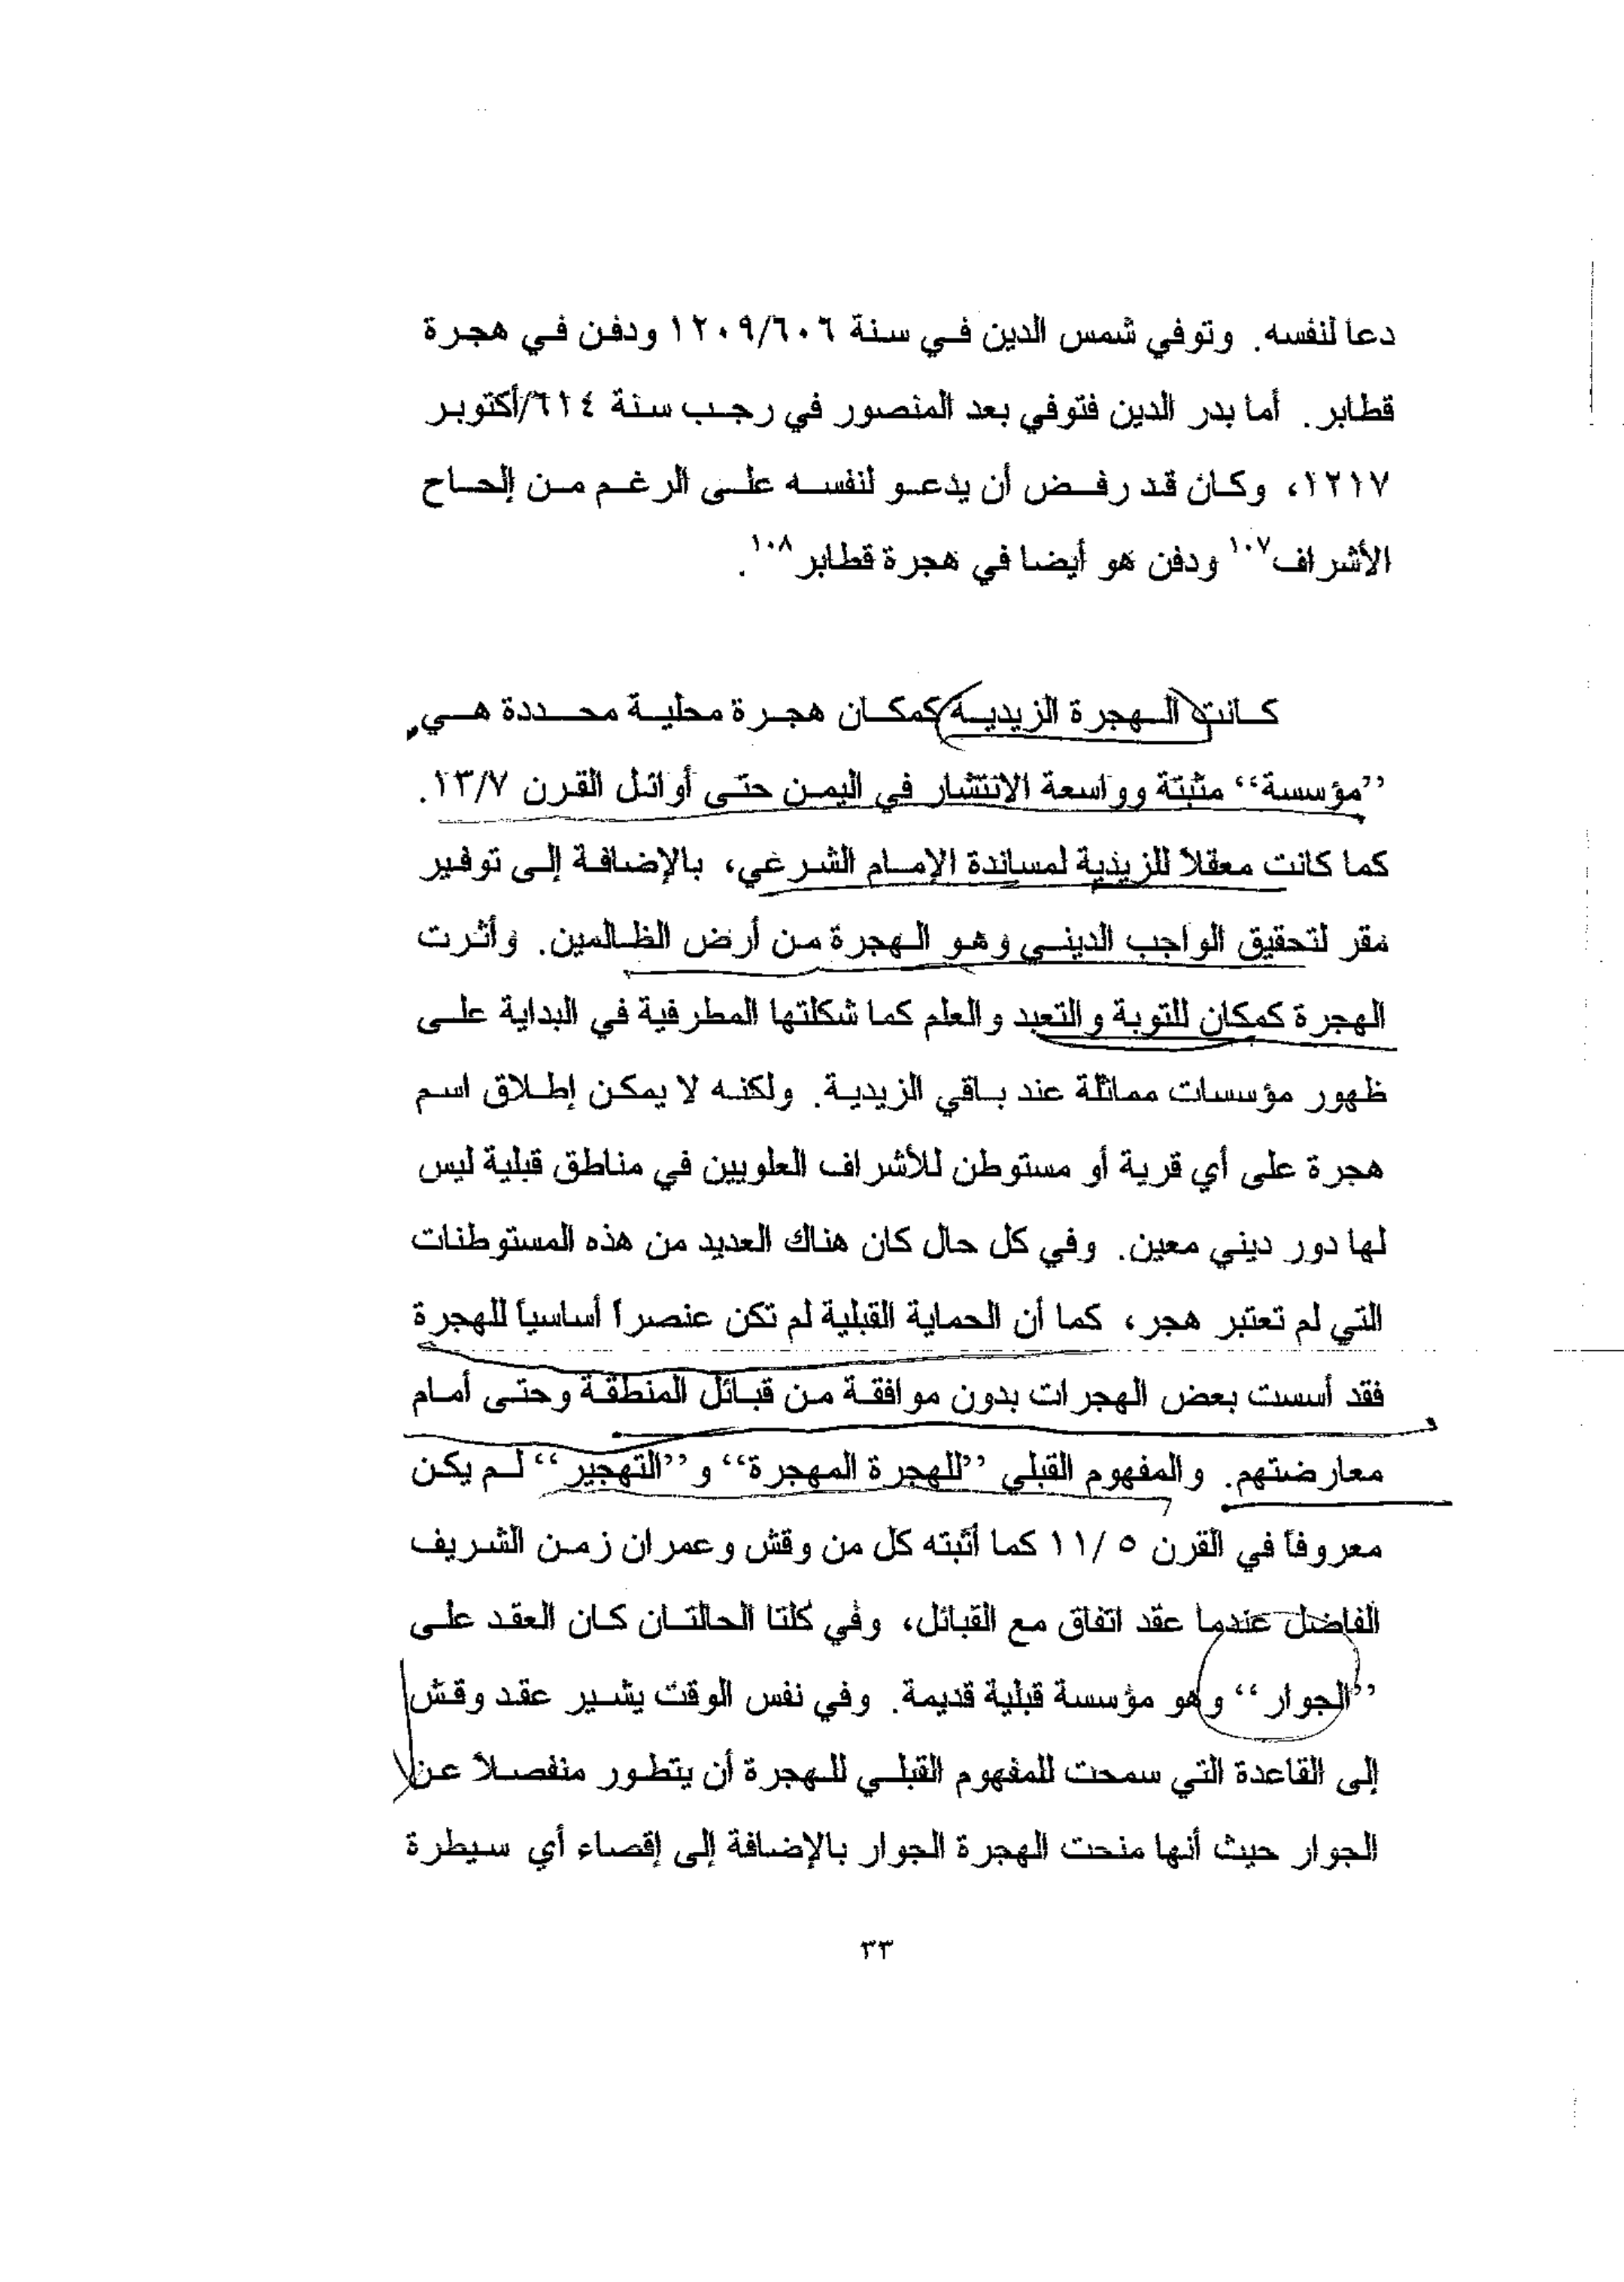 دعا لنفسه. وتوفي شمس الدين في سنة ١٢٠٩/٦٠٦ ودفن في هجرة
قطابر. أما بدر الدين فتوفي بعد المنصور في رجب سنة ٦١٤/أكتوبر
١٢١٧، وكان قد رفض أن يدعو لنفسه على الرغم من إلحاح
الأشراف١٠٧ ودفن هو أيضا في هجرة قطابر١٠٨.
كانت الهجرة الزيدية كمكان هجرة محلية محددة هي
”مؤسسة“ مثبتة وواسعة الانتشار في اليمن حتى أوائل القرن ١٣/٧.
كما كانت معقلاً للزيدية لمساندة الإمام الشرعي، بالإضافة إلى توفير
مقر لتحقيق الواجب الديني وهو الهجرة من أرض الظالمين. وأثرت
الهجرة كمكان للتوبة والتعبد والعلم كما شكلتها المطرفية في البداية على
ظهور مؤسسات مماثلة عند باقي الزيدية. ولكنه لا يمكن إطلاق اسم
هجرة على أي قرية أو مستوطن للأشراف العلويين في مناطق قبلية ليس
لها دور ديني معين. وفي كل حال كان هناك العديد من هذه المستوطنات
التي لم تعتبر هجر، كما أن الحماية القبلية لم تكن عنصراً أساسياً للهجرة
فقد أسست بعض الهجرات بدون موافقة من قبائل المنطقة وحتى أمام
معارضتهم. والمفهوم القبلي ”للهجرة المهجرة“ و”التهجير“ لم يكن
معروفاً في القرن ٥ /١١ كما أثبته كل من وقش وعمران زمن الشريف
الفاضل عندما عقد اتفاق مع القبائل، وفي كلتا الحالتان كان العقد على
”الجوار“ وهو مؤسسة قبلية قديمة. وفي نفس الوقت يشير عقد وقش
إلى القاعدة التي سمحت للمفهوم القبلي للهجرة أن يتطور منفصلاً عن
الجوار حيث أنها منحت الهجرة الجوار بالإضافة إلى إقصاء أي سيطرة
٣٣